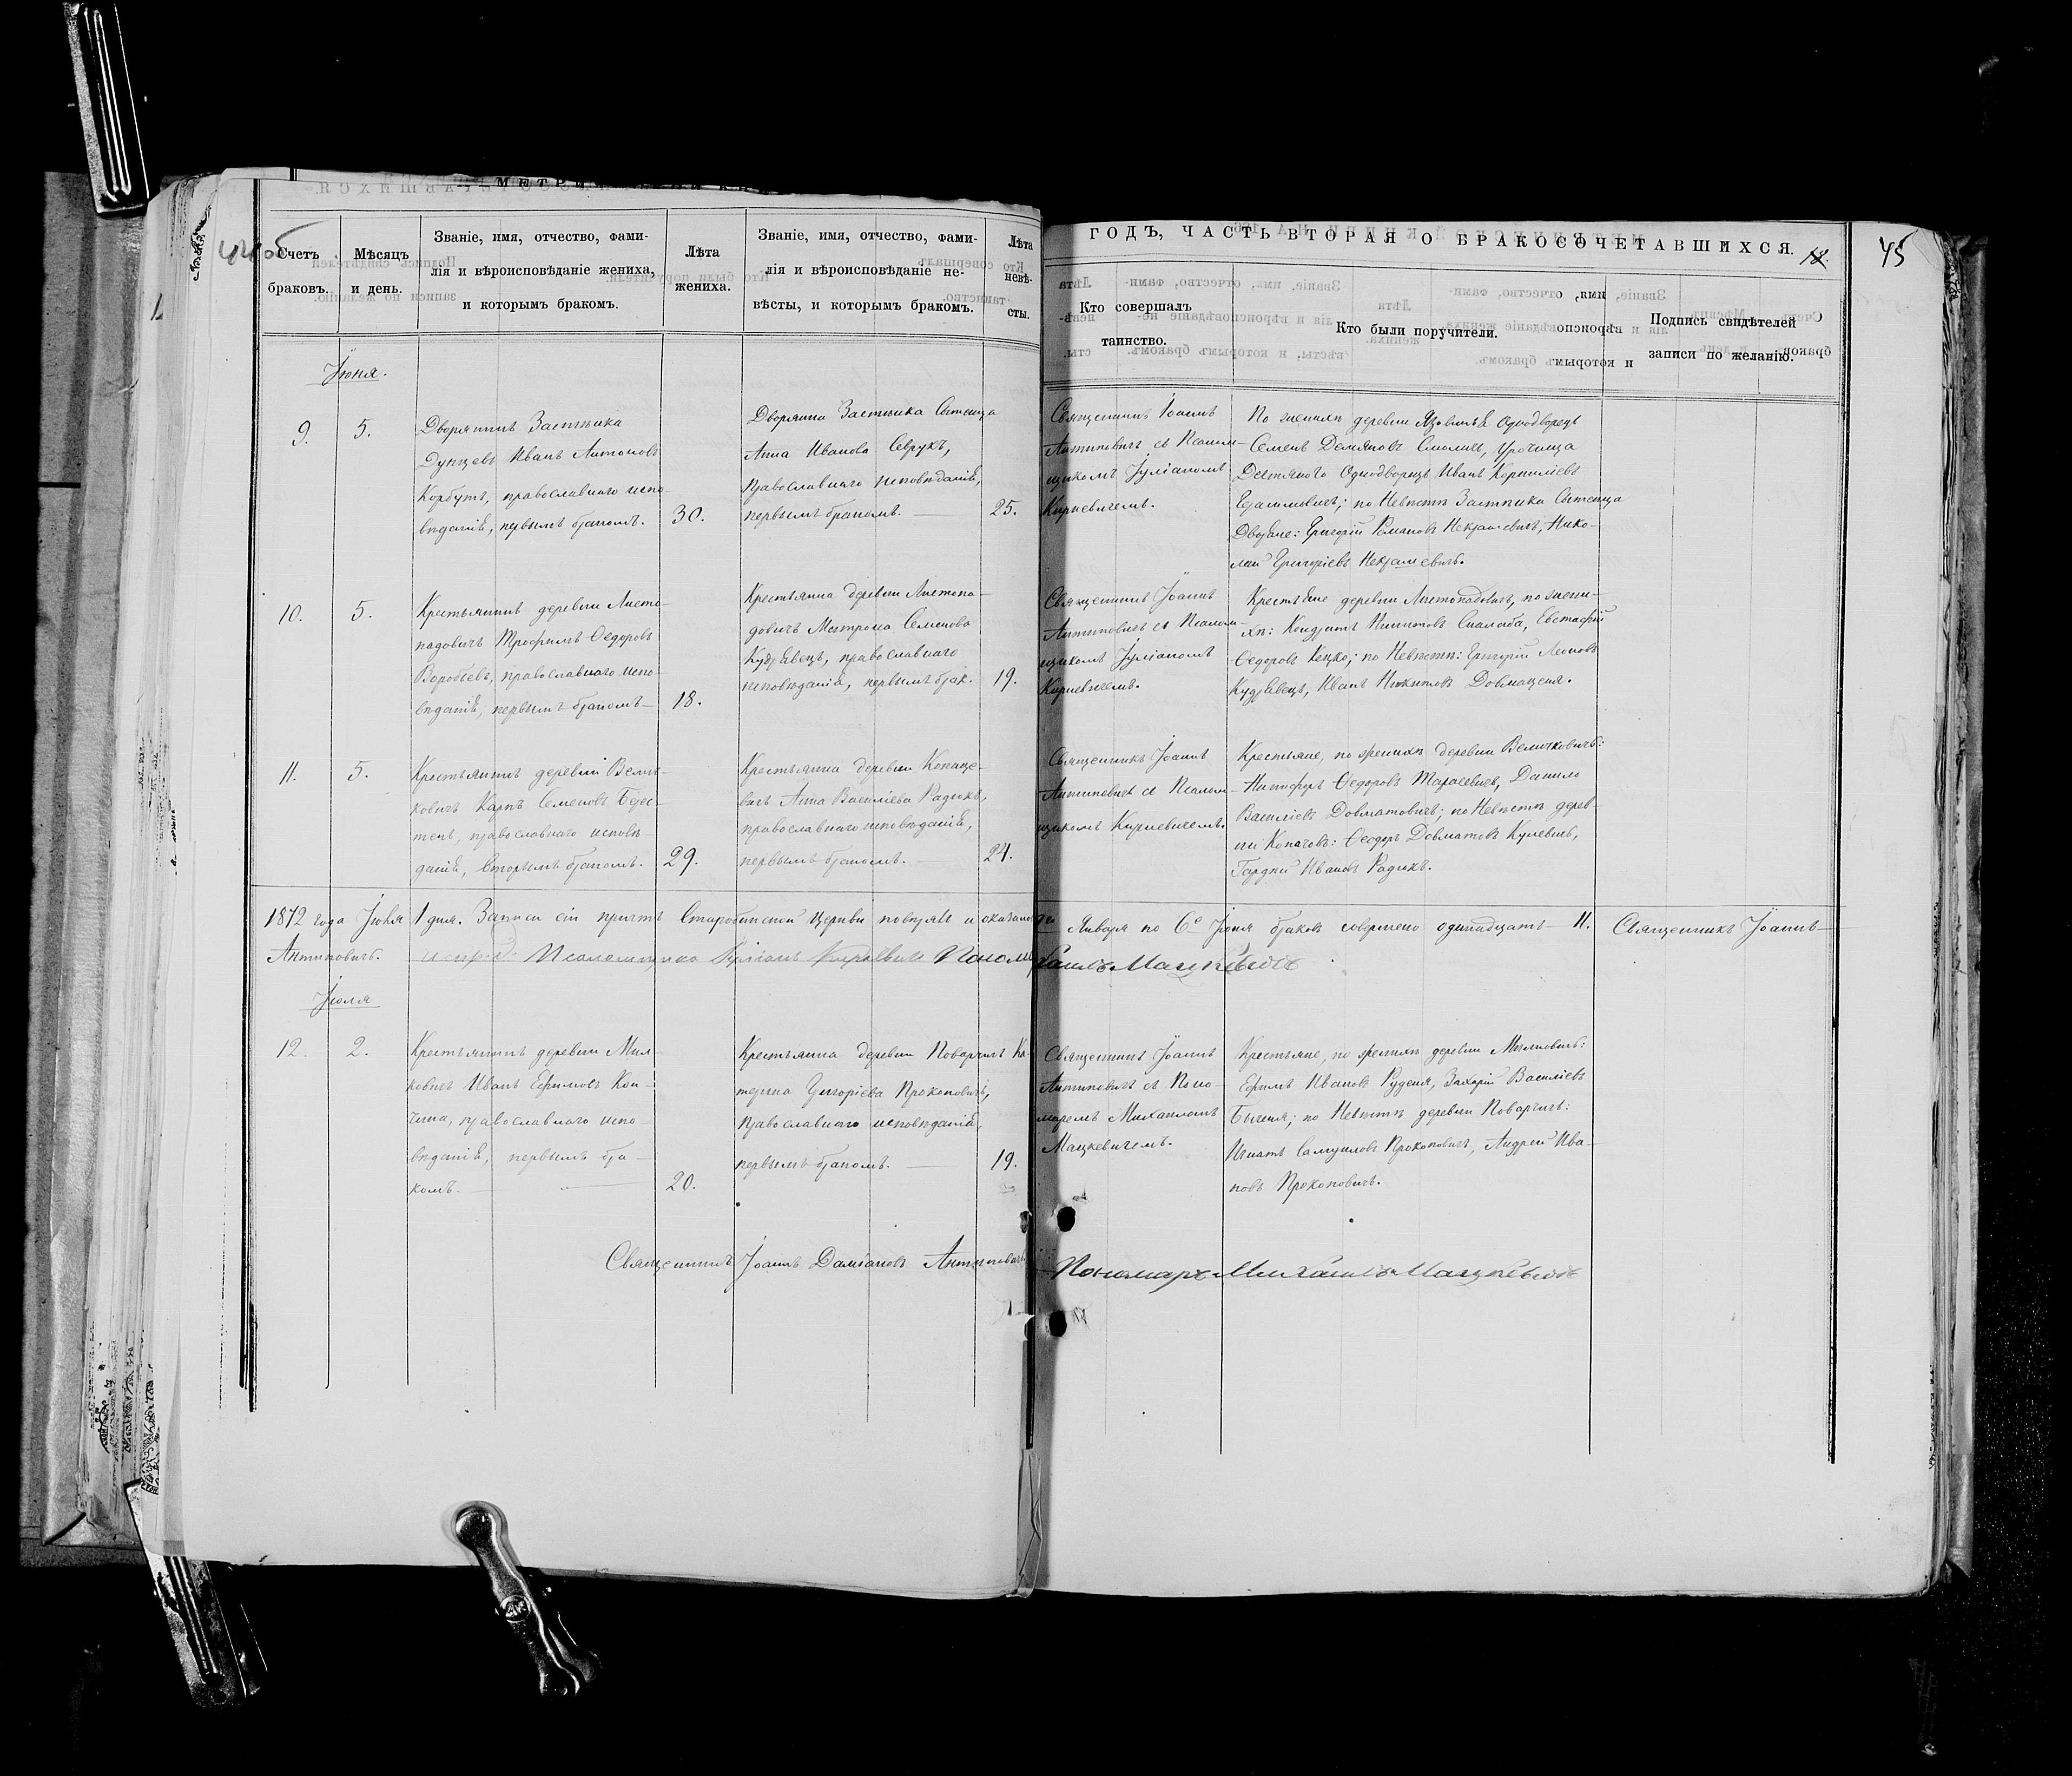 44об
ГОДЪ, ЧАСТЬ ВТОРАЯ О БРАКОСОЧЕТАВШИХСЯ.
18.
45
Счетъ
браковъ.
Мѣсяцъ
и день.
Званіе, имя, отчество, фами-
лія и вѣроисповѣданіе жениха,
и которымъ бракомъ.
Лѣта
жениха.
Званіе, имя, отчество, фами-
лія и вѣроисповѣданіе не-
вѣсты, и которымъ бракомъ.
Лѣта
невѣ-
сты.
Кто совершалъ
таинство.
Кто были поручители.
Подпись свидѣтелей
записи по желанію.
Іюня.
9.
5.
Дворянинъ Застѣнка
Иванъ Антоновъ
Корбутъ, православнаго испо-
вѣданія, первымъ бракомъ.
30.
Дворянка Застѣнка Сытенца
Анна Иванова Севрукъ,
православнаго исповѣданія,
первымъ бракомъ.
25.
Священникъ Іоаннъ
Антиповичъ съ Псалом-
щикомъ Іуліаномъ
Кириевичемъ.
По женихѣ деревни Однодворецъ
Семенъ Демяновъ Смоличъ, урочища
Однодворецъ Иванъ Корниліевъ
Герасимовичъ; по Невѣстѣ Застѣнка Сытенца
Дворяне: Григорій Романовъ Некрашевичъ, Нико-
лай Григоріевъ Некрашевичъ.
10.
5.
Крестьянинъ деревни Листо-
падовичъ Трофимъ Ѳедоровъ
Воробьевъ, православнаго испо-
вѣданія, первымъ бракомъ
18.
Крестьянка деревни Листопа-
довичъ Матрона Семенова
Кудрявецъ, православнаго
исповѣданія, первымъ брак.
19.
Священникъ Іоаннъ
Антиповичъ съ Псалом-
щикомъ Іуліаномъ
Кириевичемъ.
Крестьяне деревни Листопадовичъ, по жени-
хѣ: Кондратъ Никитовъ Евстафій
Ѳедоровъ Кецко; по Невѣстѣ: Григорій Леоновъ
Кудрявецъ, Иванъ Никитовъ
11.
5.
Крестьянинъ деревни Велич-
ковичъ Карпъ Семеновъ Берес-
тень, православнаго исповѣ-
данія, вторымъ бракомъ.
29.
Крестьянка деревни Копаце-
вичъ Анна Василіева Радюкъ,
православнаго исповѣданія,
первымъ бракомъ.
24.
Священникъ Іоаннъ
Антиповичъ съ Псалом-
щикомъ Кириевичемъ.
Крестьяне, по женихѣ деревни Величковичъ:
Никифоръ Ѳедоровъ Тарасевичъ, Данило
Василіевъ Довматовичъ; по Невѣстѣ дерев-
ни Ѳеодоръ Довматовъ Кулевичъ,
Гордѣй Ивановъ Радюкъ.
1872 года Іюля 1 дня. Записи сіи причтъ Старобинской Церкви повѣрялъ и оказалось съ Января по Іюня браковъ совершено одинадцать 11. Священникъ Іоаннъ
Антиповичъ. Псаломщика Іуліанъ Кириевичъ Пономарь Михаилъ Мацкевичъ
Іюля
12.
2.
Крестьянинъ деревни Мил-
ковичъ Иванъ Ефимовъ Кон-
чина, православнаго испо-
вѣданія, первымъ бра-
комъ.
20.
Крестьянка деревни Поварчичъ Ка-
терина Григоріева Прокоповичъ,
православнаго исповѣданія,
первымъ бракомъ.
19.
Священникъ Іоаннъ
Антиповичъ съ Поно-
маремъ Михаиломъ
Мацкевичемъ.
Крестьяне, по женихѣ деревни Милковичъ:
Ефимъ Ивановъ Руденя, Захарій Василіевъ
по Невѣстѣ деревни Поварчичъ:
Игнатъ Самуиловъ Прокоповичъ, Андрей Ива-
новъ Прокоповичъ.
Священникъ Іоаннъ Даміановъ Антиповичъ
Пономарь Михаилъ Мацкевичъ